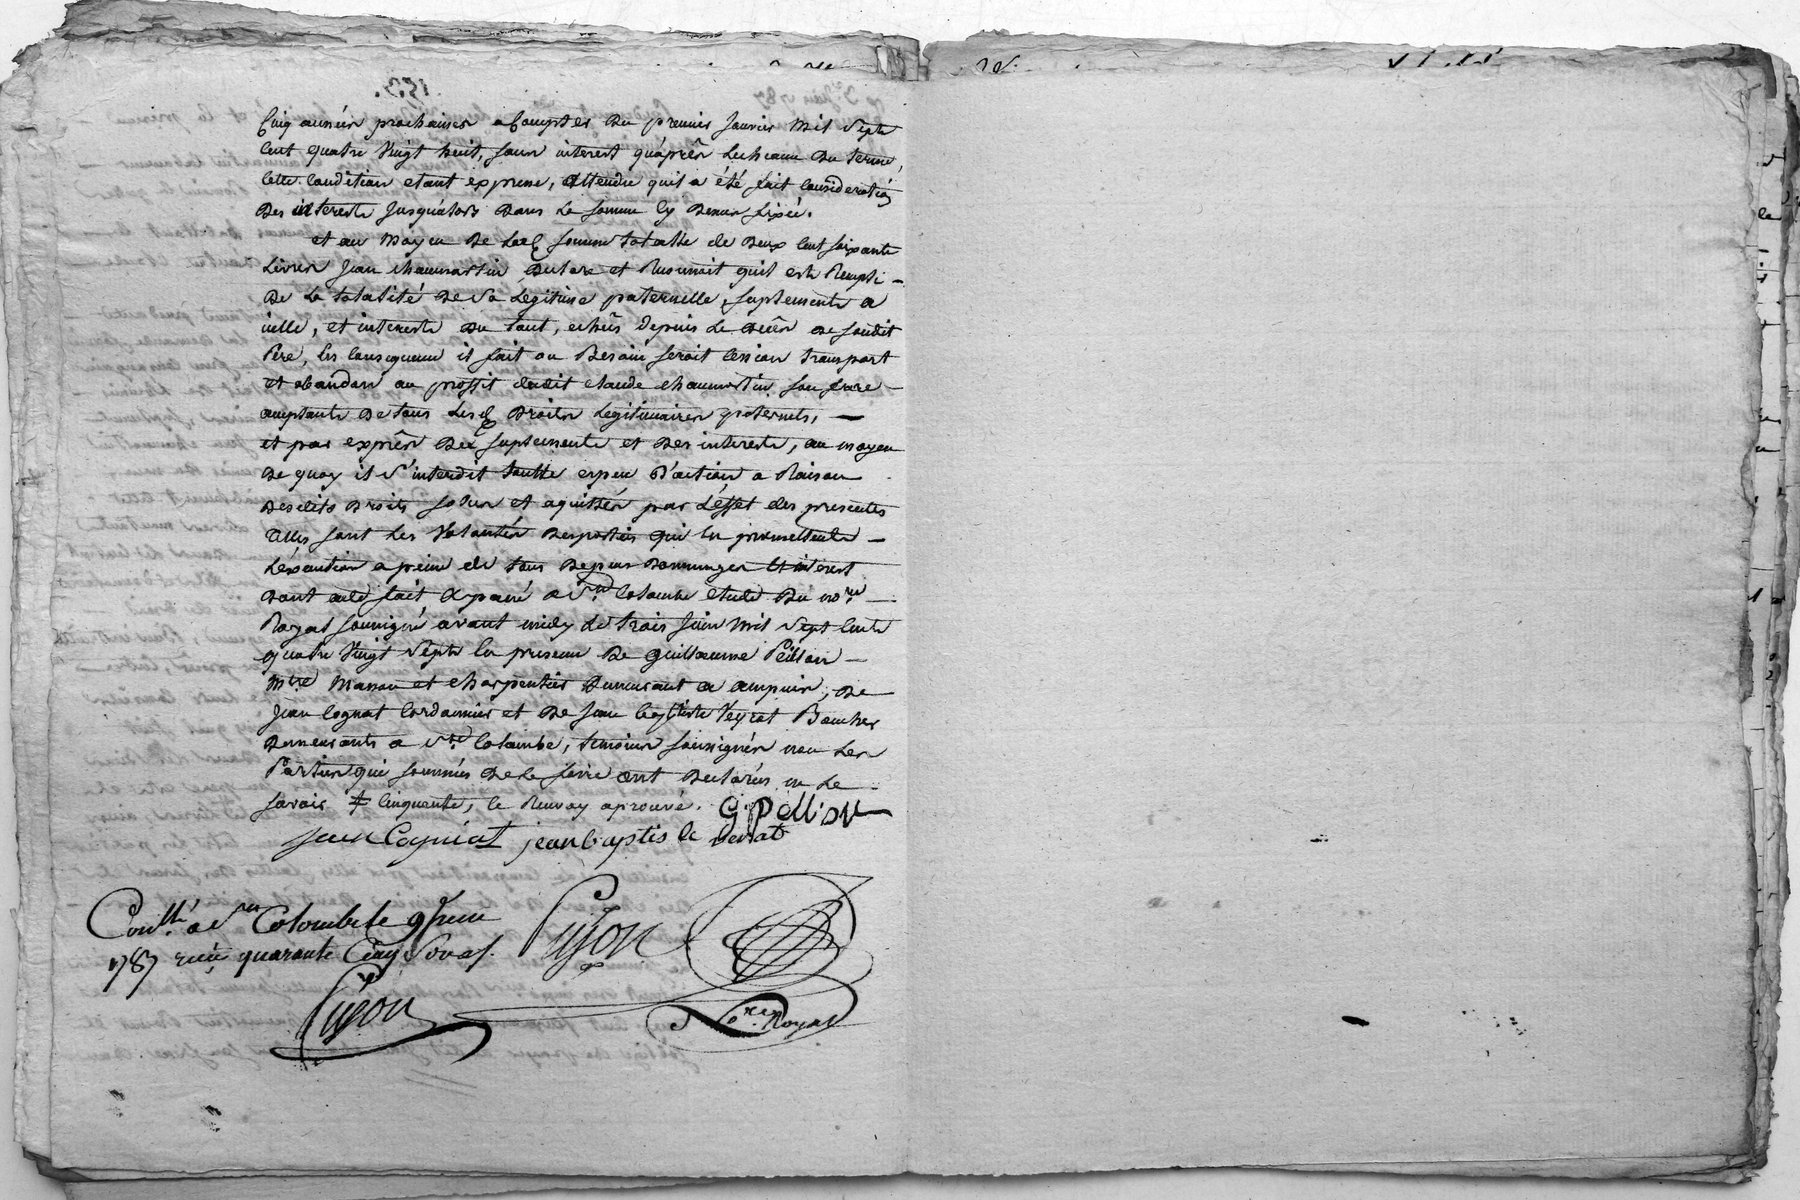 Cinq années prochaines a Compter du premier Janvier mil Sept
Cent quatre Vingt huit, sans interest qu'après Lecheance du terme,
Cette Condition etant expresse, attendu quil a été fait Considération
des interests Jusqu'alors dans la somme Cy dessus fixée.
et au moyen de lad. somme totalle de deux Cent soixante
Livres Jean chaumartin declare et Reconnoit quil est Rempli
de la totalité de sa Légitime paternelle, suplements a
icelle, et interests du tout, echûs depuis le décès de sondit
Père, En Consequence il fait au Besoin seroit Cession transport
et abandon au proffit dudit claude chaumartin son frere
acceptants de tous lesd. droits Légitimaires paternels,
et par exprès des suplements et des interests, au moyen
de quoy il s'interdit toutte espece d'action a Raison
desdits droits solus et aquittés par l'effet des presentes
telles sont les Volontés desparties qui en promettent
L'exécution a peine de tous depens dommages et interest
dont acte fait et passé a Ste Colombe etude du nore
Royal soussigné avant midy le trois Juin mil sept Cent
quatre Vingt Sept En presence de guillaume Pellion
Mtre Masson et charpentier demeurant a ampuis, de
Jean Cognat Cordonnier et de Jean baptiste Veyrat Boucher
demeurants a Ste Colombe, temoins soussignés non les
Parties qui sommées de le faire ont declarées ne le
savoir ‡ Cinquante, le Renvoy aprouvé. G. pellion
jean Cogniat jean baptis te verat
Conllé a Ste Colombe le 9 Juin Pujon
1787 reçu quarante Cinq Sous.
Pujon
Nore Royal